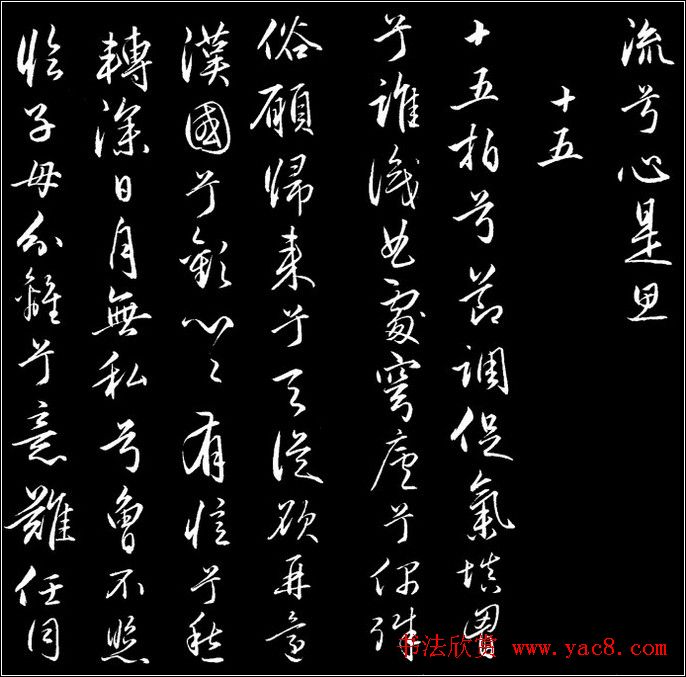 流兮心是思
十五
十五拍兮節調促氣填胸
兮誰識曲處穹廬兮偶殊
俗願歸來兮天從欲再還
漢國兮歡心〻有懷兮愁
轉深日月無私兮曾不照
臨子母分離兮意難任同
书法欣赏 www.yac8.com